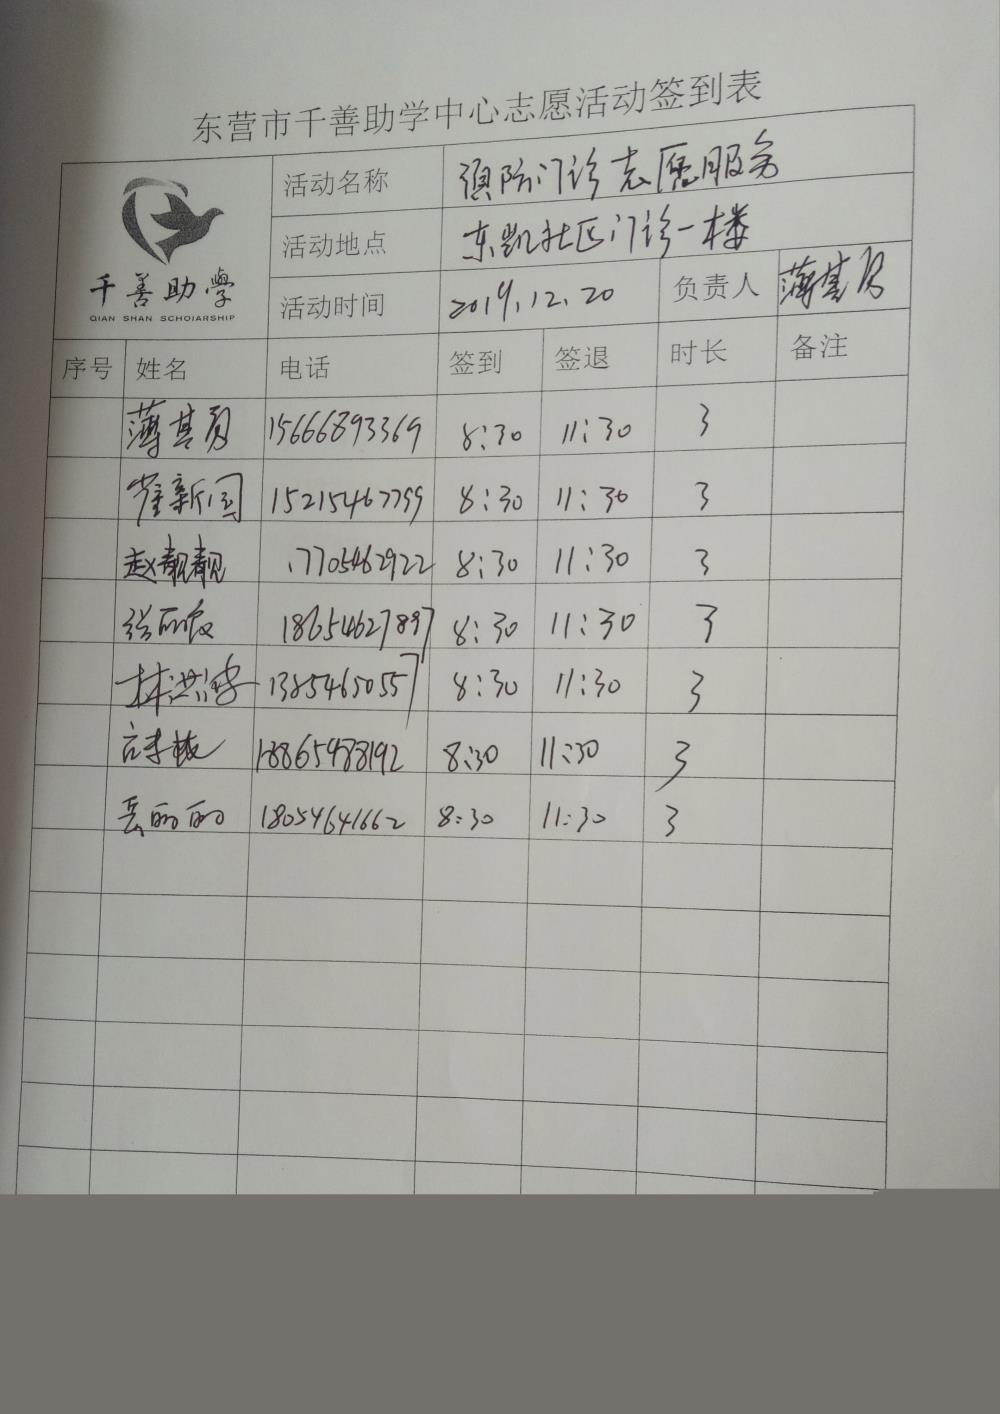 东营市千善助学中心志愿活动签到表
千善助學
QIAN SHAN SCHOlARSHIP
活动名称 预防门诊志愿服务
活动地点 东凯社区门诊一楼
活动时间 2019.12.20 负责人 薄其
序号 姓名 电话 签到 签退 时长 备注
薄其 15666893369 8:30 11:30 3
崔新国 15215467799 8:30 11:30 3
赵靓靓 17705462922 8:30 11:30 3
张 18654627897 8:30 11:30 3
林洪 13854650557 8:30 11:30 3
8:30 11:30 3
岳丽丽 18054641662 8:30 11:30 3